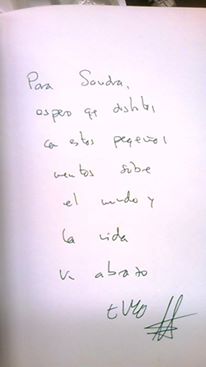 Para Sandra,
espero qe disfrutes
con estos pequeños
cuentos sobre
el mundo y
la vida
Un abrazo